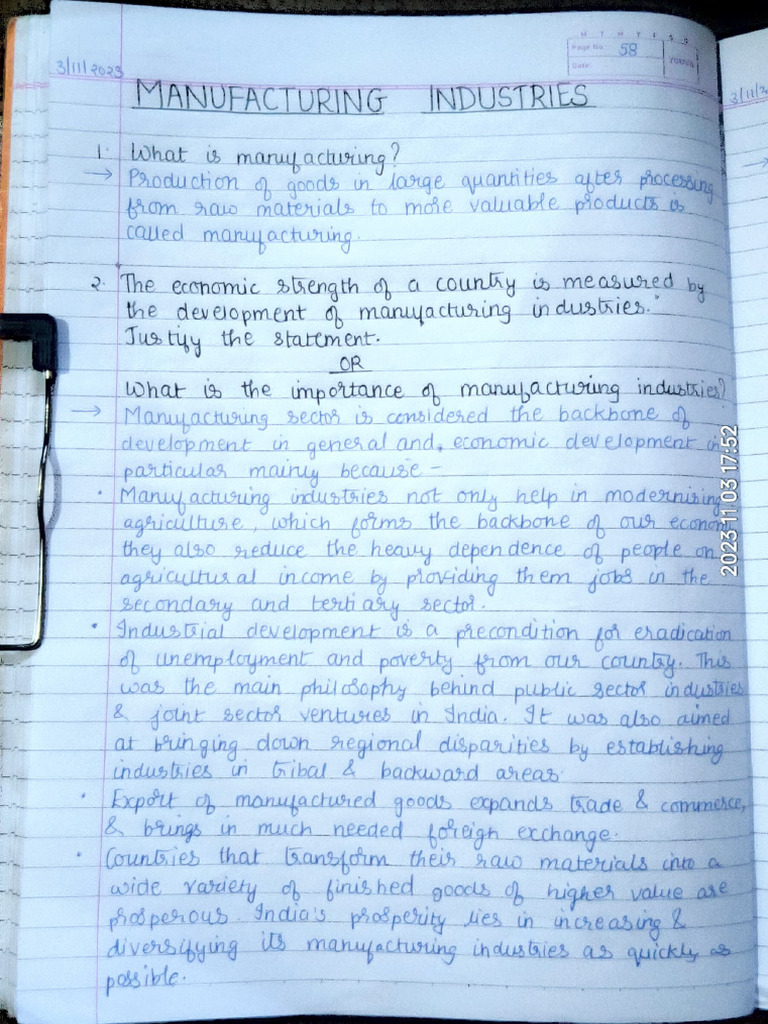 M T W T F S S
Page No. 58
Date:
YOUVA
3/11/2023
MANUFACTURING INDUSTRIES
1. What is manufacturing?
→ Production of goods in large quantities after processing
from raw materials to more valuable products is
called manufacturing.
2. The economic strength of a country is measured by
the development of manufacturing industries."
Justify the statement.
OR
What is the importance of manufacturing industries?
→ Manufacturing sector is considered the backbone of
development in general and, economic development in
particular mainly because –
• Manufacturing industries not only help in modernising
agriculture, which forms the backbone of our econom
they also reduce the heavy dependence of people on
agricultural income by providing them jobs in the
secondary and tertiary sector.
• Industrial development is a precondition for eradication
of unemployment and poverty from our country. This
was the main philosophy behind public sector industries
& joint sector ventures in India. It was also aimed
at bringing down regional disparities by establishing
industries in tribal & backward areas.
• Export of manufactured goods expands trade & commerce,
& brings in much needed foreign exchange.
• Countries that transform their raw materials into a
wide variety of finished goods of higher value are
prosperous. India's prosperity lies in increasing &
diversifying its manufacturing industries as quickly as
possible.
2023 11 03 17:52
3/11/2
→